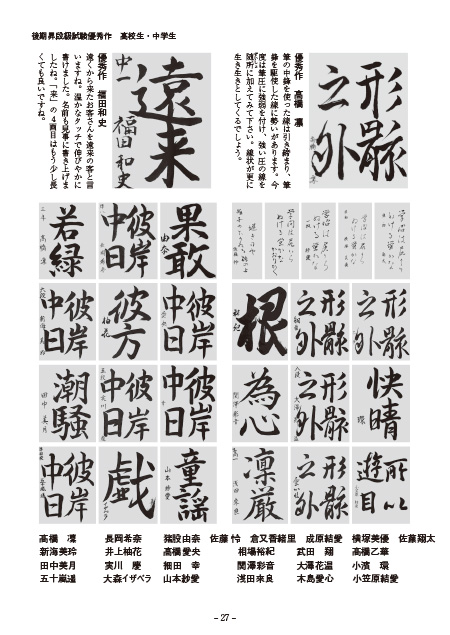 後期昇段級試験優秀作　高校生・中学生
形骸
之外
優秀作　高橋　凜
筆の中鋒を使った線は引き締まり、筆
鋒を駆使した線に勢いがあります。今
度は筆圧に強弱を付け、強い圧の線を
随所に加えてみて下さい。線状が更に
生き生きとしてくるでしょう。
遠来
中一 福田和史
優秀作　福田和史
遠くから来たお客さんを遠来の客と言
いますね。温かなタッチで伸びやかに
書けました。名前も見事に書き上げま
したね。「来」の４画目はもう少し長
くても良いですね。
若緑
彼岸
中日
果敢
由奈
彼岸
中日
彼方
柚花
彼岸
中日
根
形骸
之外
形骸
之外
潮騒
田中美月
彼岸
中日
彼岸
中日
為心
関澤彩音
形骸
之外
快晴
環
彼岸
中日
戯
童謡
山本紗愛
凜厳
浅田来良
形骸
之外
所以
遊目
高橋　凜　長岡希奈　猪股由奈　佐藤 怜　倉又香緒里　成原結愛　横塚美優　佐藤翔太
新海美玲　井上柚花　高橋愛央　相場裕紀　武田　翔　高橋乙華
田中美月　実川　慶　細田　幸　関澤彩音　大澤花温　小濱　環
五十嵐遥　大森イザベラ　山本紗愛　浅田来良　木島愛心　小笠原結愛
- 27 -